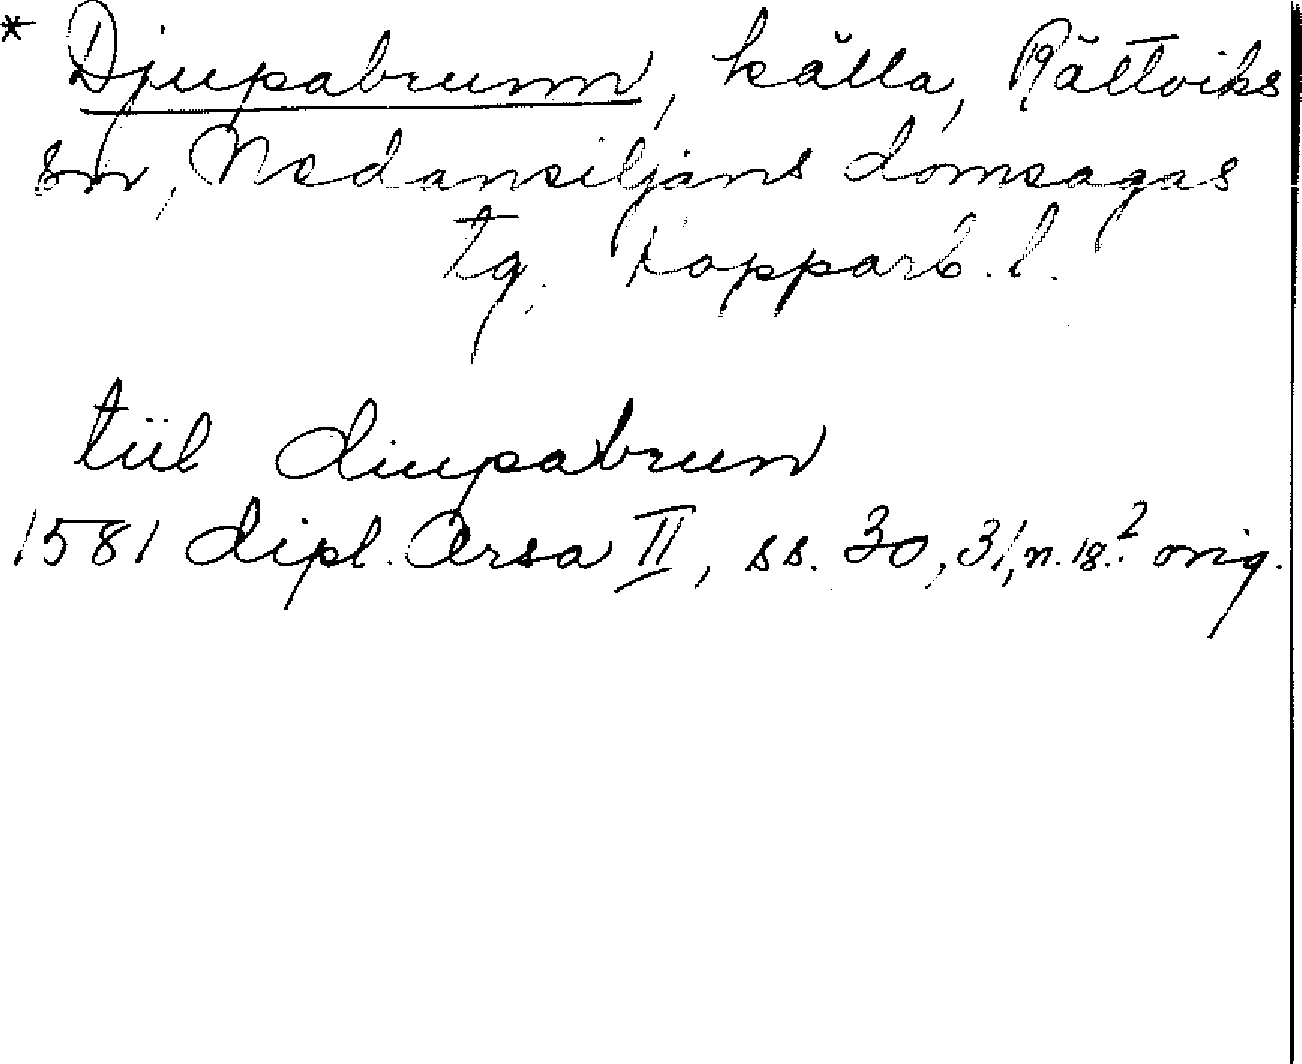 * Djupabrunn, källa, Rättviks
sn, Nedansiljans domsagas
tg, Kopparb. l.
tiil diupabrun
1581 dipl. Orsa II, ss. 30, 31, n. 18.² orig.